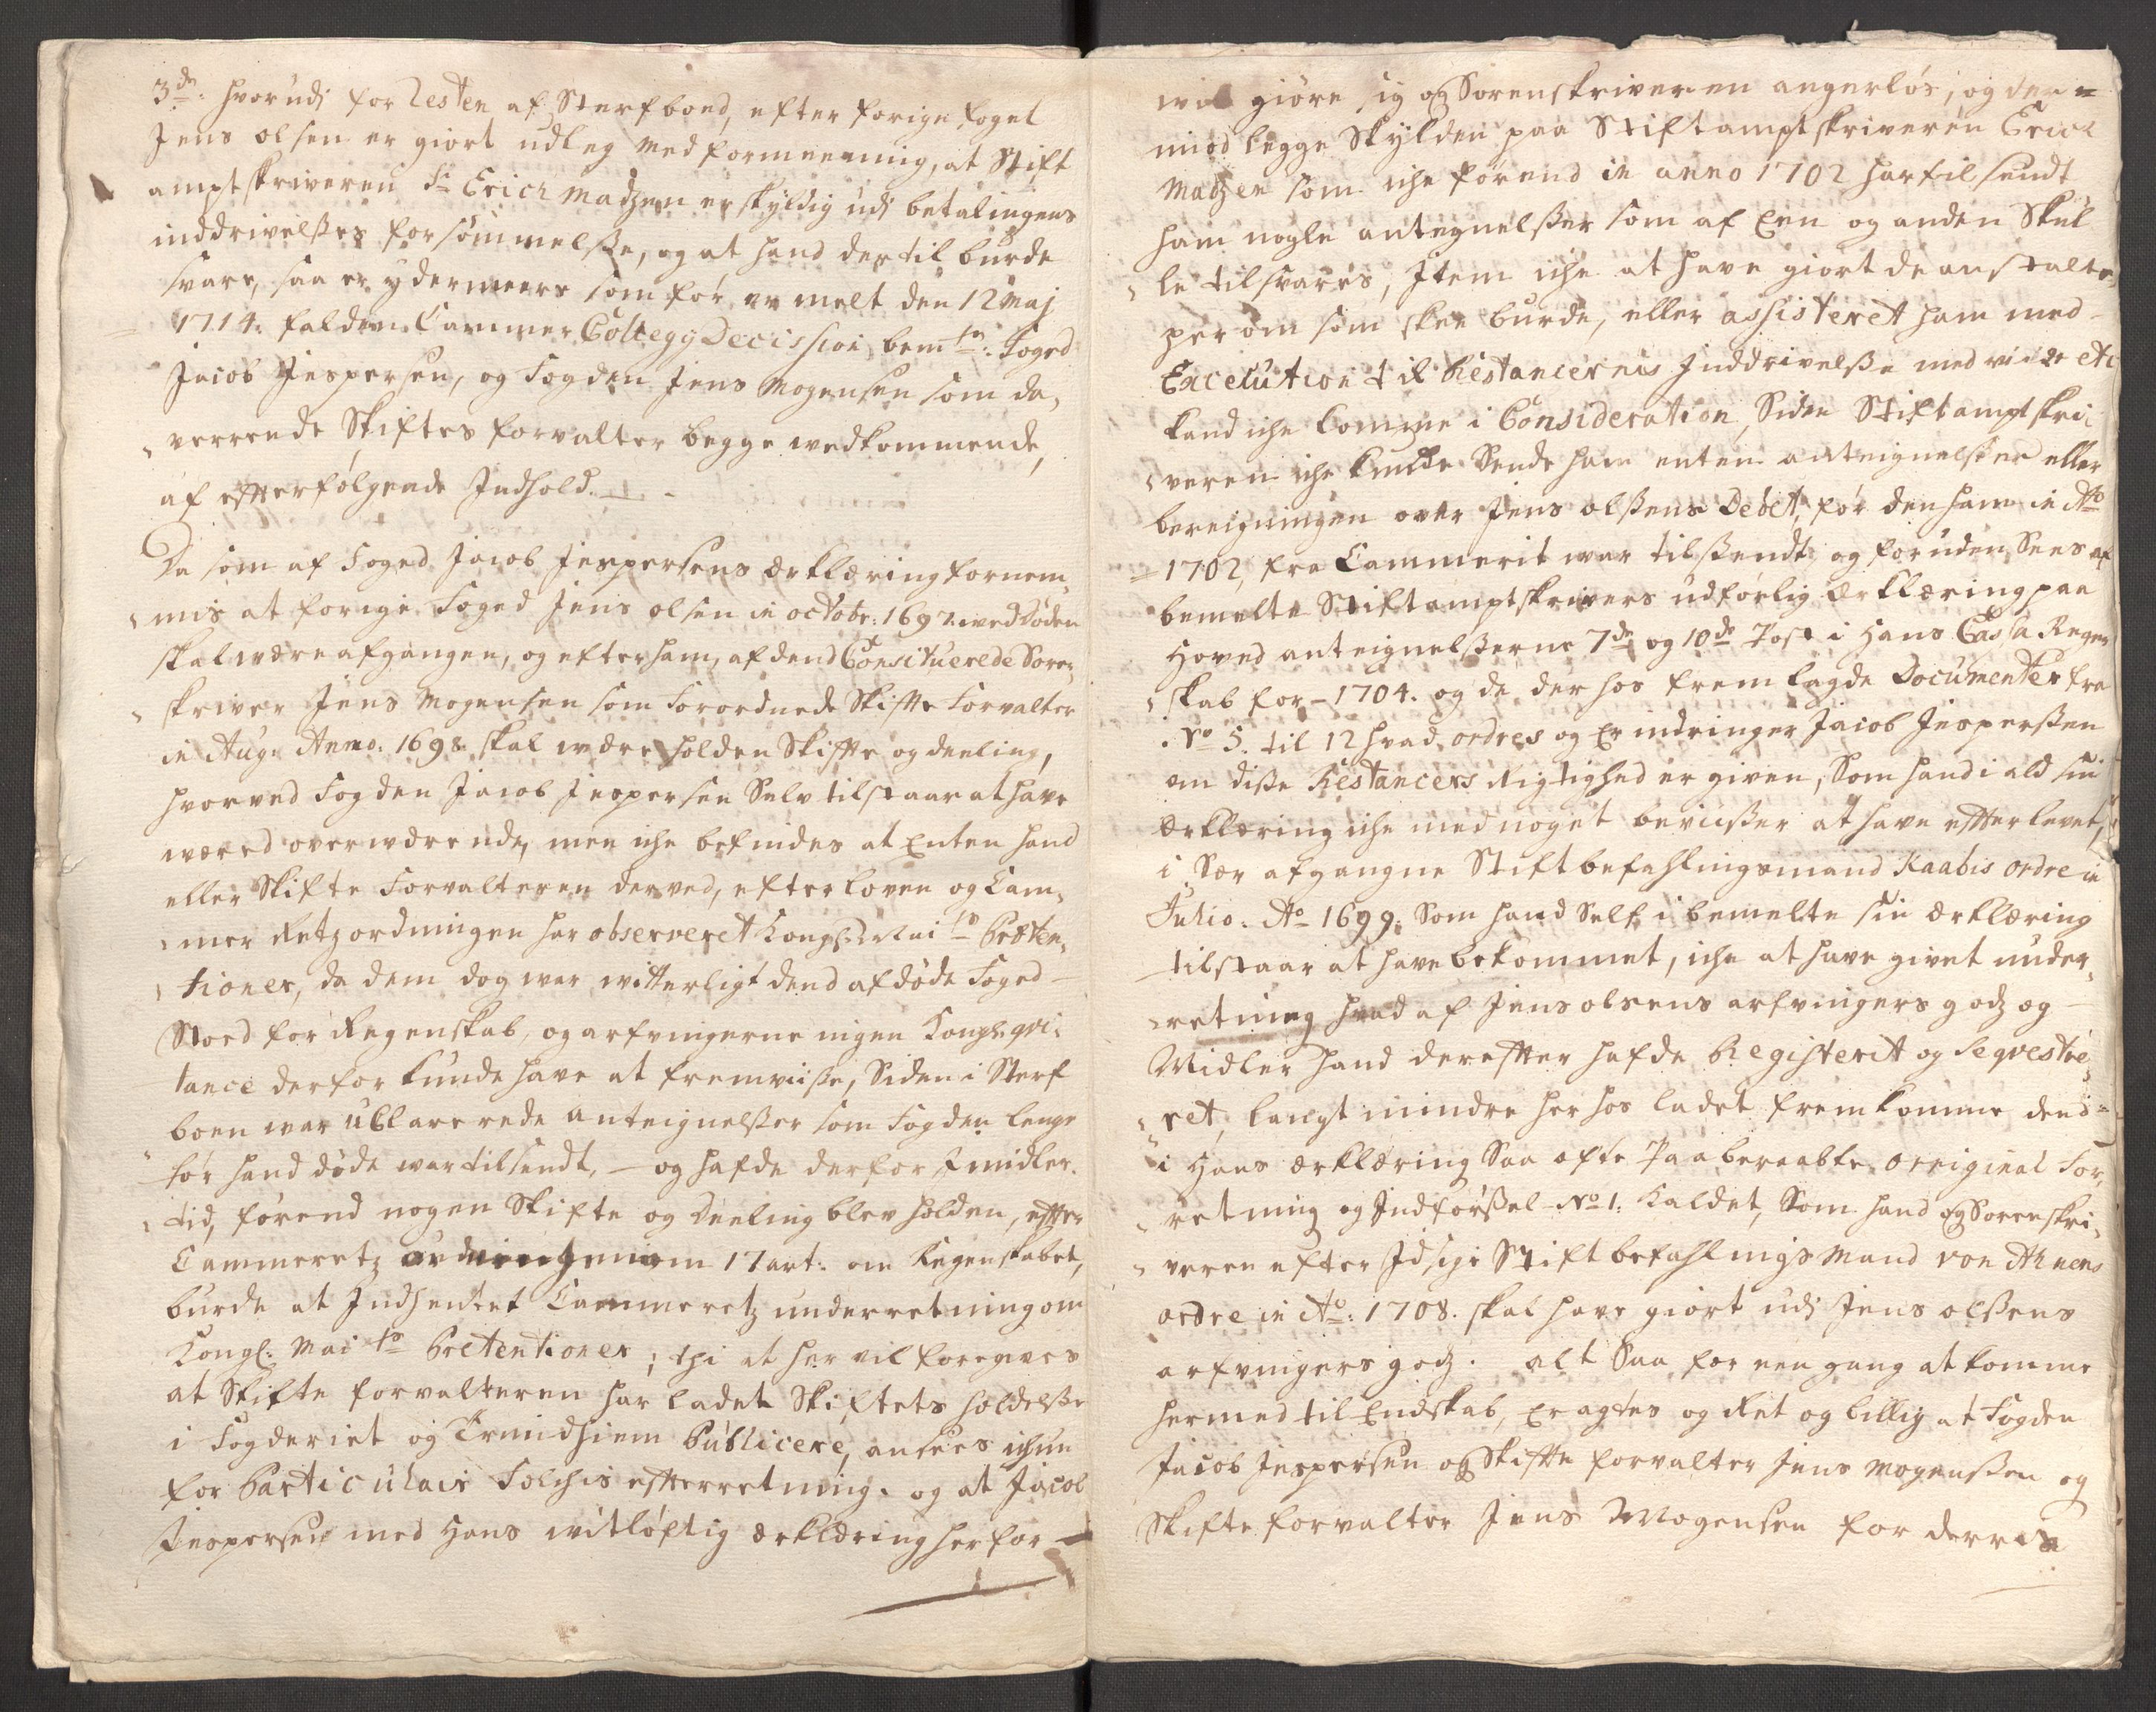 3de: hvorudj for Resten af Sterfboed, efter forige foget
Jens olsen er giort udleg med formeening, at Stift
amptskriveren Sr Erich Madzen er skyldig udj betalingens
inddrivelßes forsømmelße, og at hand der til burde
svare, saa er ydermeere som før er melt den 12 Maj
1714. falden Cammer Collegy Decission, bemte: Foged
Jacob Jespersen, og Fogden Jens Mogensen som da,
verrende Skiftes forvalter begge vedkommende,
af effterfølgende Indhold.
Da som af Foged Jacob Jespersens Erklæring fornem,
mis at forige Foged Jens olsen in octobr: 1697. ved Døden
skal være afgangen, og efter ham, af dend Consituerede Soren
skriver Jens Mogensen som Forordnede Skiffte Forvalter
in Aug: Anno. 1698. skal være holden Skiffte og deeling,
hvorved Fogden Jacob Jespersen Selv tilstaar at have
været overværende, men iche befindes at Enten hand
eller Skifte Forvalteren derved, efter loven og Cam,
mer Retz ordningen har observeret Kongl: Maits Præten,
tioner, da dem dog var vitterligt dend afdøde Foged
Stoed for Regenskab, og arfvingerne ingen Kongl: qvi,
tance derfor kunde have at fremviiße, Siden i Sterf
boen var uClarerede Anteignelßer som Fogden lenge
før hand døde var tilsendt, og hafde derfor Imidler,
tid, førend nogen Skifte og deeling blev holden, effter
Cammeretz 17 art: om Regenskabet,
burde at Indhentet Cammeretz underretning om
Kongl: Maits Prætentioner; thi at her vil foregives
at Skifte forvalteren har ladet Skiftets holdelße
i Fogderiet og Trundhiem Publicere, ansees ichun
for Particulair Folchis effterretning. og at Jacob
Jespersen med Hans vitløftig Erklæring herfor
vil giøre sig og Sorenskriveren angerløs, og der=
imod legge Skylden paa Stiftamptskriveren Erich
Matzen som iche førend in anno 1702 har til sendt
ham nogle antegnelßer som af Een og anden Skul
le tilsvares, Item iche at have giort de anstalter
herom som skee burde, eller assisteret ham med
Execution til Restancernis Inddrivelße med videre etc
kand iche Comme i Consideration, Siden Stiftamptskri,
veren iche kunde Sende ham enten anteignelßer eller
bereigningen over Jens olßens Debet, før den ham in Ao
1702, fra Cammerit war tilßendt, og foruden Sees af
bemelte Stiftamptskrivers udførlig Erklæring paa
Hoved anteignelßerne 7de og 10de Post i Hans Cassa Regen
skab for 1704. og de der hos frem lagde Documenter fra
No 5. til 12 hvad ordres og Erindringer Jacob Jesperßen
om diße Restancers Rigtighed er given, Som hand i ald sin
Erklæring iche med noget beviißer at have effterlevet,
i Sær afgangne Stiftbefahlingsmand Kaabis ordre in
Julio. Ao 1699. Som hand Self i bemelte sin Erklæring
tilstaar at have bekommet, iche at have givet under,
retning hvad af Jens olsens arfvingers godz og
Midler hand dereffter hafde Registerit og Seqvestre
ret, langt mindre her hos ladet fremkomme dend=
i Hans Erklæring Saa ofte Paaberaabte original For,
retning og Indførßel No 1. Kaldet, Som hand og Sorenskri,
veren efter Idsige Stiftbefahlings Mand von Ahnens
ordre in Ao: 1708. skal have giort udj Jens olßens
arfvingers godz. alt Saa for een gang at komme
hermed til Endskab, Eragtes og Ret og billig at Fogden
Jacob Jespersen og Skiffte forvalter Jens Mogenßen og
Skifte forvalter Jens Mogensen for derris